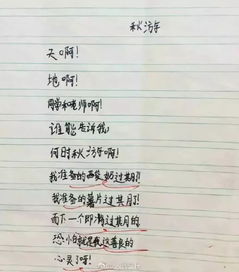 秋游
天啊!
地啊!
同学和老师啊!
谁能告诉我,
何时秋游啊!
我准备的面包,奶过其月了!
我准备的薯片过其月了!
而下一个即将过其月的
恐怕就是我这善良的
心灵了呀!